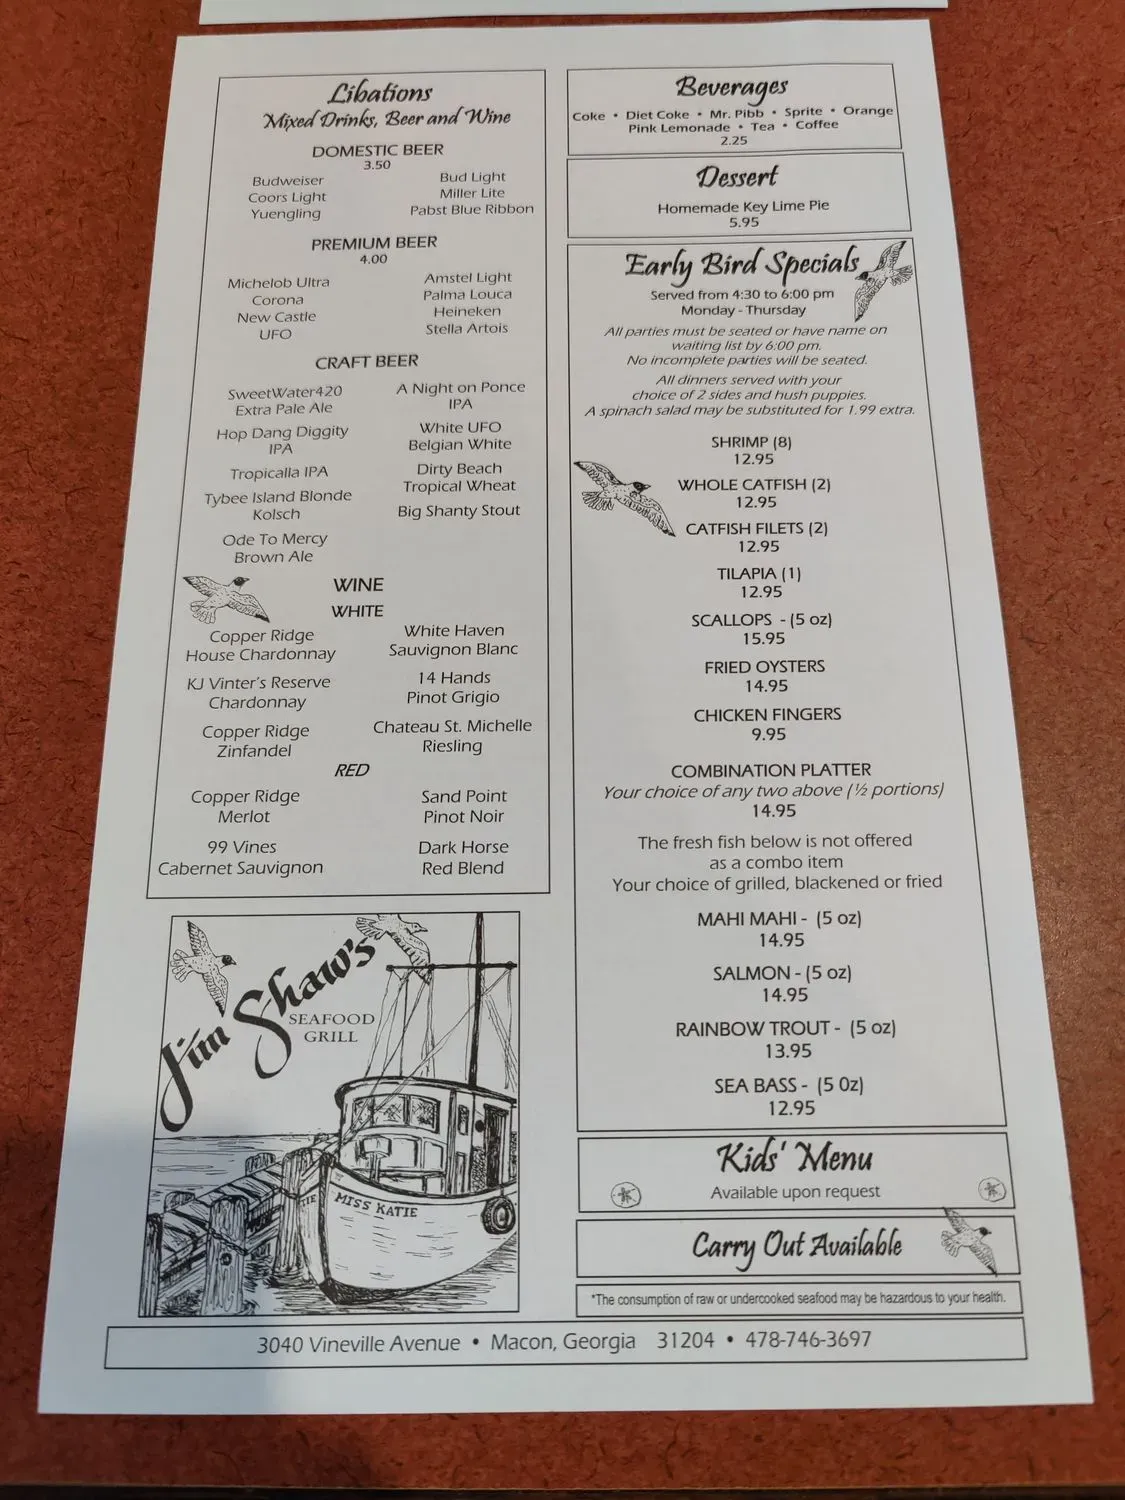 Libations
Mixed Drinks, Beer and Wine
DOMESTIC BEER
3.50
Budweiser
Coors Light
Yuengling
Bud Light
Miller Lite
Pabst Blue Ribbon
PREMIUM BEER
4.00
Michelob Ultra
Corona
New Castle
UFO
Amstel Light
Palma Louca
Heineken
Stella Artois
CRAFT BEER
SweetWater420
Extra Pale Ale
Hop Dang Diggity
IPA
Tropicalla IPA
Tybee Island Blonde
Kolsch
Ode To Mercy
Brown Ale
A Night on Ponce
IPA
White UFO
Belgian White
Dirty Beach
Tropical Wheat
Big Shanty Stout
WINE
WHITE
Copper Ridge
House Chardonnay
KJ Vinter's Reserve
Chardonnay
Copper Ridge
Zinfandel
White Haven
Sauvignon Blanc
14 Hands
Pinot Grigio
Chateau St. Michelle
Riesling
RED
Copper Ridge
Merlot
99 Vines
Cabernet Sauvignon
Sand Point
Pinot Noir
Dark Horse
Red Blend
Jim Shaw's
SEAFOOD
GRILL
TIE
MISS KATIE
Beverages
Coke • Diet Coke • Mr. Pibb • Sprite • Orange
Pink Lemonade • Tea • Coffee
2.25
Dessert
Homemade Key Lime Pie
5.95
Early Bird Specials
Served from 4:30 to 6:00 pm
Monday - Thursday
All parties must be seated or have name on
waiting list by 6:00 pm.
No incomplete parties will be seated.
All dinners served with your
choice of 2 sides and hush puppies.
A spinach salad may be substituted for 1.99 extra.
SHRIMP (8)
12.95
WHOLE CATFISH (2)
12.95
CATFISH FILETS (2)
12.95
TILAPIA (1)
12.95
SCALLOPS - (5 oz)
15.95
FRIED OYSTERS
14.95
CHICKEN FINGERS
9.95
COMBINATION PLATTER
Your choice of any two above (½ portions)
14.95
The fresh fish below is not offered
as a combo item
Your choice of grilled, blackened or fried
MAHI MAHI - (5 oz)
14.95
SALMON - (5 oz)
14.95
RAINBOW TROUT - (5 oz)
13.95
SEA BASS - (5 0z)
12.95
Kids' Menu
Available upon request
Carry Out Available
*The consumption of raw or undercooked seafood may be hazardous to your health.
3040 Vineville Avenue • Macon, Georgia 31204 • 478-746-3697